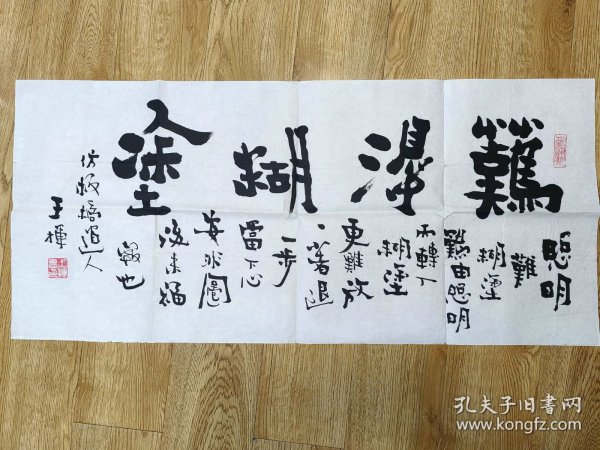 難得糊塗
聰明
難
糊塗
難由聰明
而轉入
糊塗
更難放
一著退
一步
當下心
安非圖
後来福
報也
仿板橋道人
王
孔夫子旧书网
www.kongfz.com